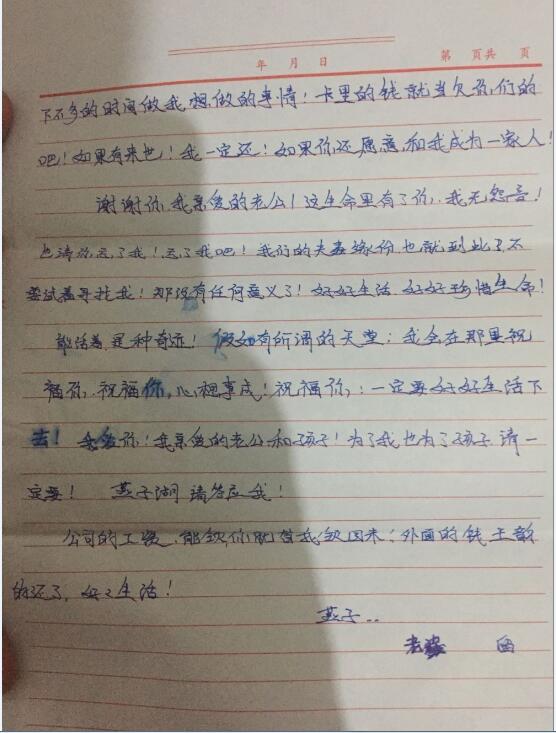 年 月 日
第 页共 页
下不多的时间做我想做的事情！卡里的钱就当欠你们的
吧！如果有来世！我一定还！如果你还愿意，和我成为一家人！
谢谢你，我亲爱的老公！这生命里有了你，我无怨言！
也请你忘了我！忘了我吧！我们的夫妻缘份也就到此了，不
要试着寻找我！那没有任何意义了！好好生活，好好珍惜生命！
能活着是种奇迹！假如有所谓的天堂；我会在那里祝
福你，祝福你，心想事成！祝福你：一定要好好生活下
去！我爱你！我亲爱的老公和孩子！为了我也为了孩子，请一
定要！ 燕子 请答应我！
公司的工资，能 你 替我 回来；外面的钱王
的还了，好好生活！
燕子..
老婆 留